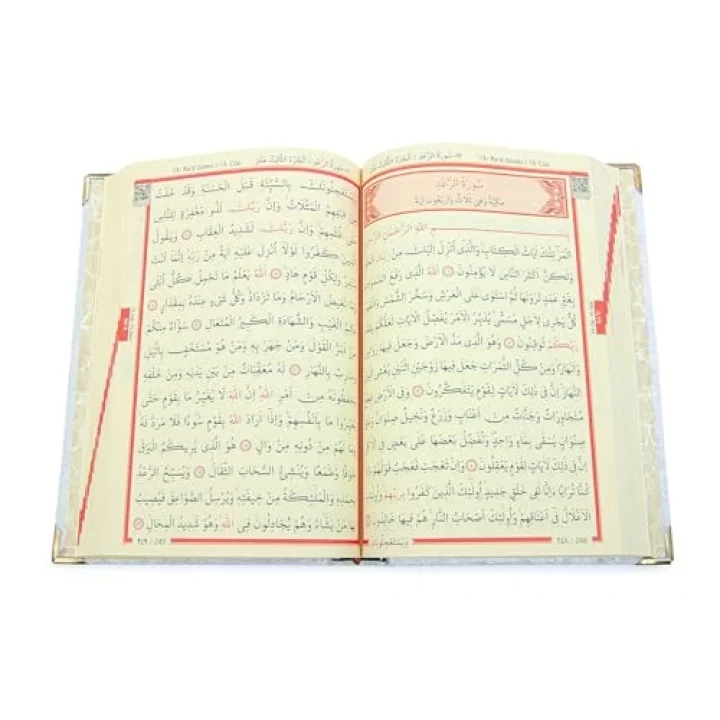 ١٣- سورة الرعد / الجزء الثالث عشر
سُورَةُ الرَّعْدِ
بِسْمِ اللهِ الرَّحْمٰنِ الرَّحِيمِ
الٓمٓرٰ تِلْكَ اٰيَاتُ الْكِتَابِ وَالَّذِي اُنْزِلَ اِلَيْكَ مِنْ رَبِّكَ
وَلٰكِنَّ اَكْثَرَ النَّاسِ لَا يُؤْمِنُونَ اَللهُ الَّذِي رَفَعَ السَّمٰوَاتِ
بِغَيْرِ عَمَدٍ تَرَوْنَهَا ثُمَّ اسْتَوٰى عَلَى الْعَرْشِ وَسَخَّرَ الشَّمْسَ
كُلٌّ يَجْرِي لِاَجَلٍ مُسَمًّى يُدَبِّرُ الْاَمْرَ يُفَصِّلُ الْاٰيَاتِ لَعَلَّكُمْ
رَبِّكُمْ تُوقِنُونَ وَهُوَ الَّذِي مَدَّ الْاَرْضَ وَجَعَلَ فِيهَا
وَاَنْهَارًا وَمِنْ كُلِّ الثَّمَرَاتِ جَعَلَ فِيهَا زَوْجَيْنِ اثْنَيْنِ يُغْشِي
النَّهَارَ اِنَّ فِي ذٰلِكَ لَاٰيَاتٍ لِقَوْمٍ يَتَفَكَّرُونَ وَفِي الْاَرْضِ
مُتَجَاوِرَاتٌ وَجَنَّاتٌ مِنْ اَعْنَابٍ وَزَرْعٌ وَنَخِيلٌ صِنْوَانٌ
صِنْوَانٍ يُسْقٰى بِمَاءٍ وَاحِدٍ وَنُفَضِّلُ بَعْضَهَا عَلٰى بَعْضٍ فِي
اِنَّ فِي ذٰلِكَ لَاٰيَاتٍ لِقَوْمٍ يَعْقِلُونَ وَاِنْ تَعْجَبْ فَعَجَبٌ قَوْلُهُمْ
كُنَّا تُرَابًا ءَاِنَّا لَفِي خَلْقٍ جَدِيدٍ اُولٰئِكَ الَّذِينَ كَفَرُوا بِرَبِّهِمْ
الْاَغْلَالُ فِي اَعْنَاقِهِمْ وَاُولٰئِكَ اَصْحَابُ النَّارِ هُمْ فِيهَا خَالِدُونَ
وَيَسْتَعْجِلُونَكَ
٢٤٨
سورة الرعد / الجزء الثالث عشر
بِالسَّيِّئَةِ قَبْلَ الْحَسَنَةِ وَقَدْ خَلَتْ
مِنْ قَبْلِهِمُ الْمَثُلَاتُ وَاِنَّ رَبَّكَ لَذُو مَغْفِرَةٍ لِلنَّاسِ
ظُلْمِهِمْ وَاِنَّ رَبَّكَ لَشَدِيدُ الْعِقَابِ وَيَقُولُ
كَفَرُوا لَوْلَا اُنْزِلَ عَلَيْهِ اٰيَةٌ مِنْ رَبِّهِ اِنَّمَا اَنْتَ
وَلِكُلِّ قَوْمٍ هَادٍ اَللهُ يَعْلَمُ مَا تَحْمِلُ كُلُّ اُنْثٰى
تَغِيضُ الْاَرْحَامُ وَمَا تَزْدَادُ وَكُلُّ شَيْءٍ عِنْدَهُ بِمِقْدَارٍ
الْغَيْبِ وَالشَّهَادَةِ الْكَبِيرُ الْمُتَعَالِ سَوَاءٌ مِنْكُمْ
الْقَوْلَ وَمَنْ جَهَرَ بِهِ وَمَنْ هُوَ مُسْتَخْفٍ بِالَّيْلِ
بِالنَّهَارِ لَهُ مُعَقِّبَاتٌ مِنْ بَيْنِ يَدَيْهِ وَمِنْ خَلْفِهِ
يَحْفَظُونَهُ مِنْ اَمْرِ اللهِ اِنَّ اللهَ لَا يُغَيِّرُ مَا بِقَوْمٍ حَتّٰى
يُغَيِّرُوا مَا بِاَنْفُسِهِمْ وَاِذَا اَرَادَ اللهُ بِقَوْمٍ سُوءًا فَلَا مَرَدَّ لَهُ
لَهُمْ مِنْ دُونِهِ مِنْ وَالٍ هُوَ الَّذِي يُرِيكُمُ الْبَرْقَ
خَوْفًا وَطَمَعًا وَيُنْشِئُ السَّحَابَ الثِّقَالَ وَيُسَبِّحُ الرَّعْدُ
بِحَمْدِهِ وَالْمَلٰئِكَةُ مِنْ خِيفَتِهِ وَيُرْسِلُ الصَّوَاعِقَ فَيُصِيبُ
بِهَا مَنْ يَشَاءُ وَهُمْ يُجَادِلُونَ فِي اللهِ وَهُوَ شَدِيدُ الْمِحَالِ
٢٤٩